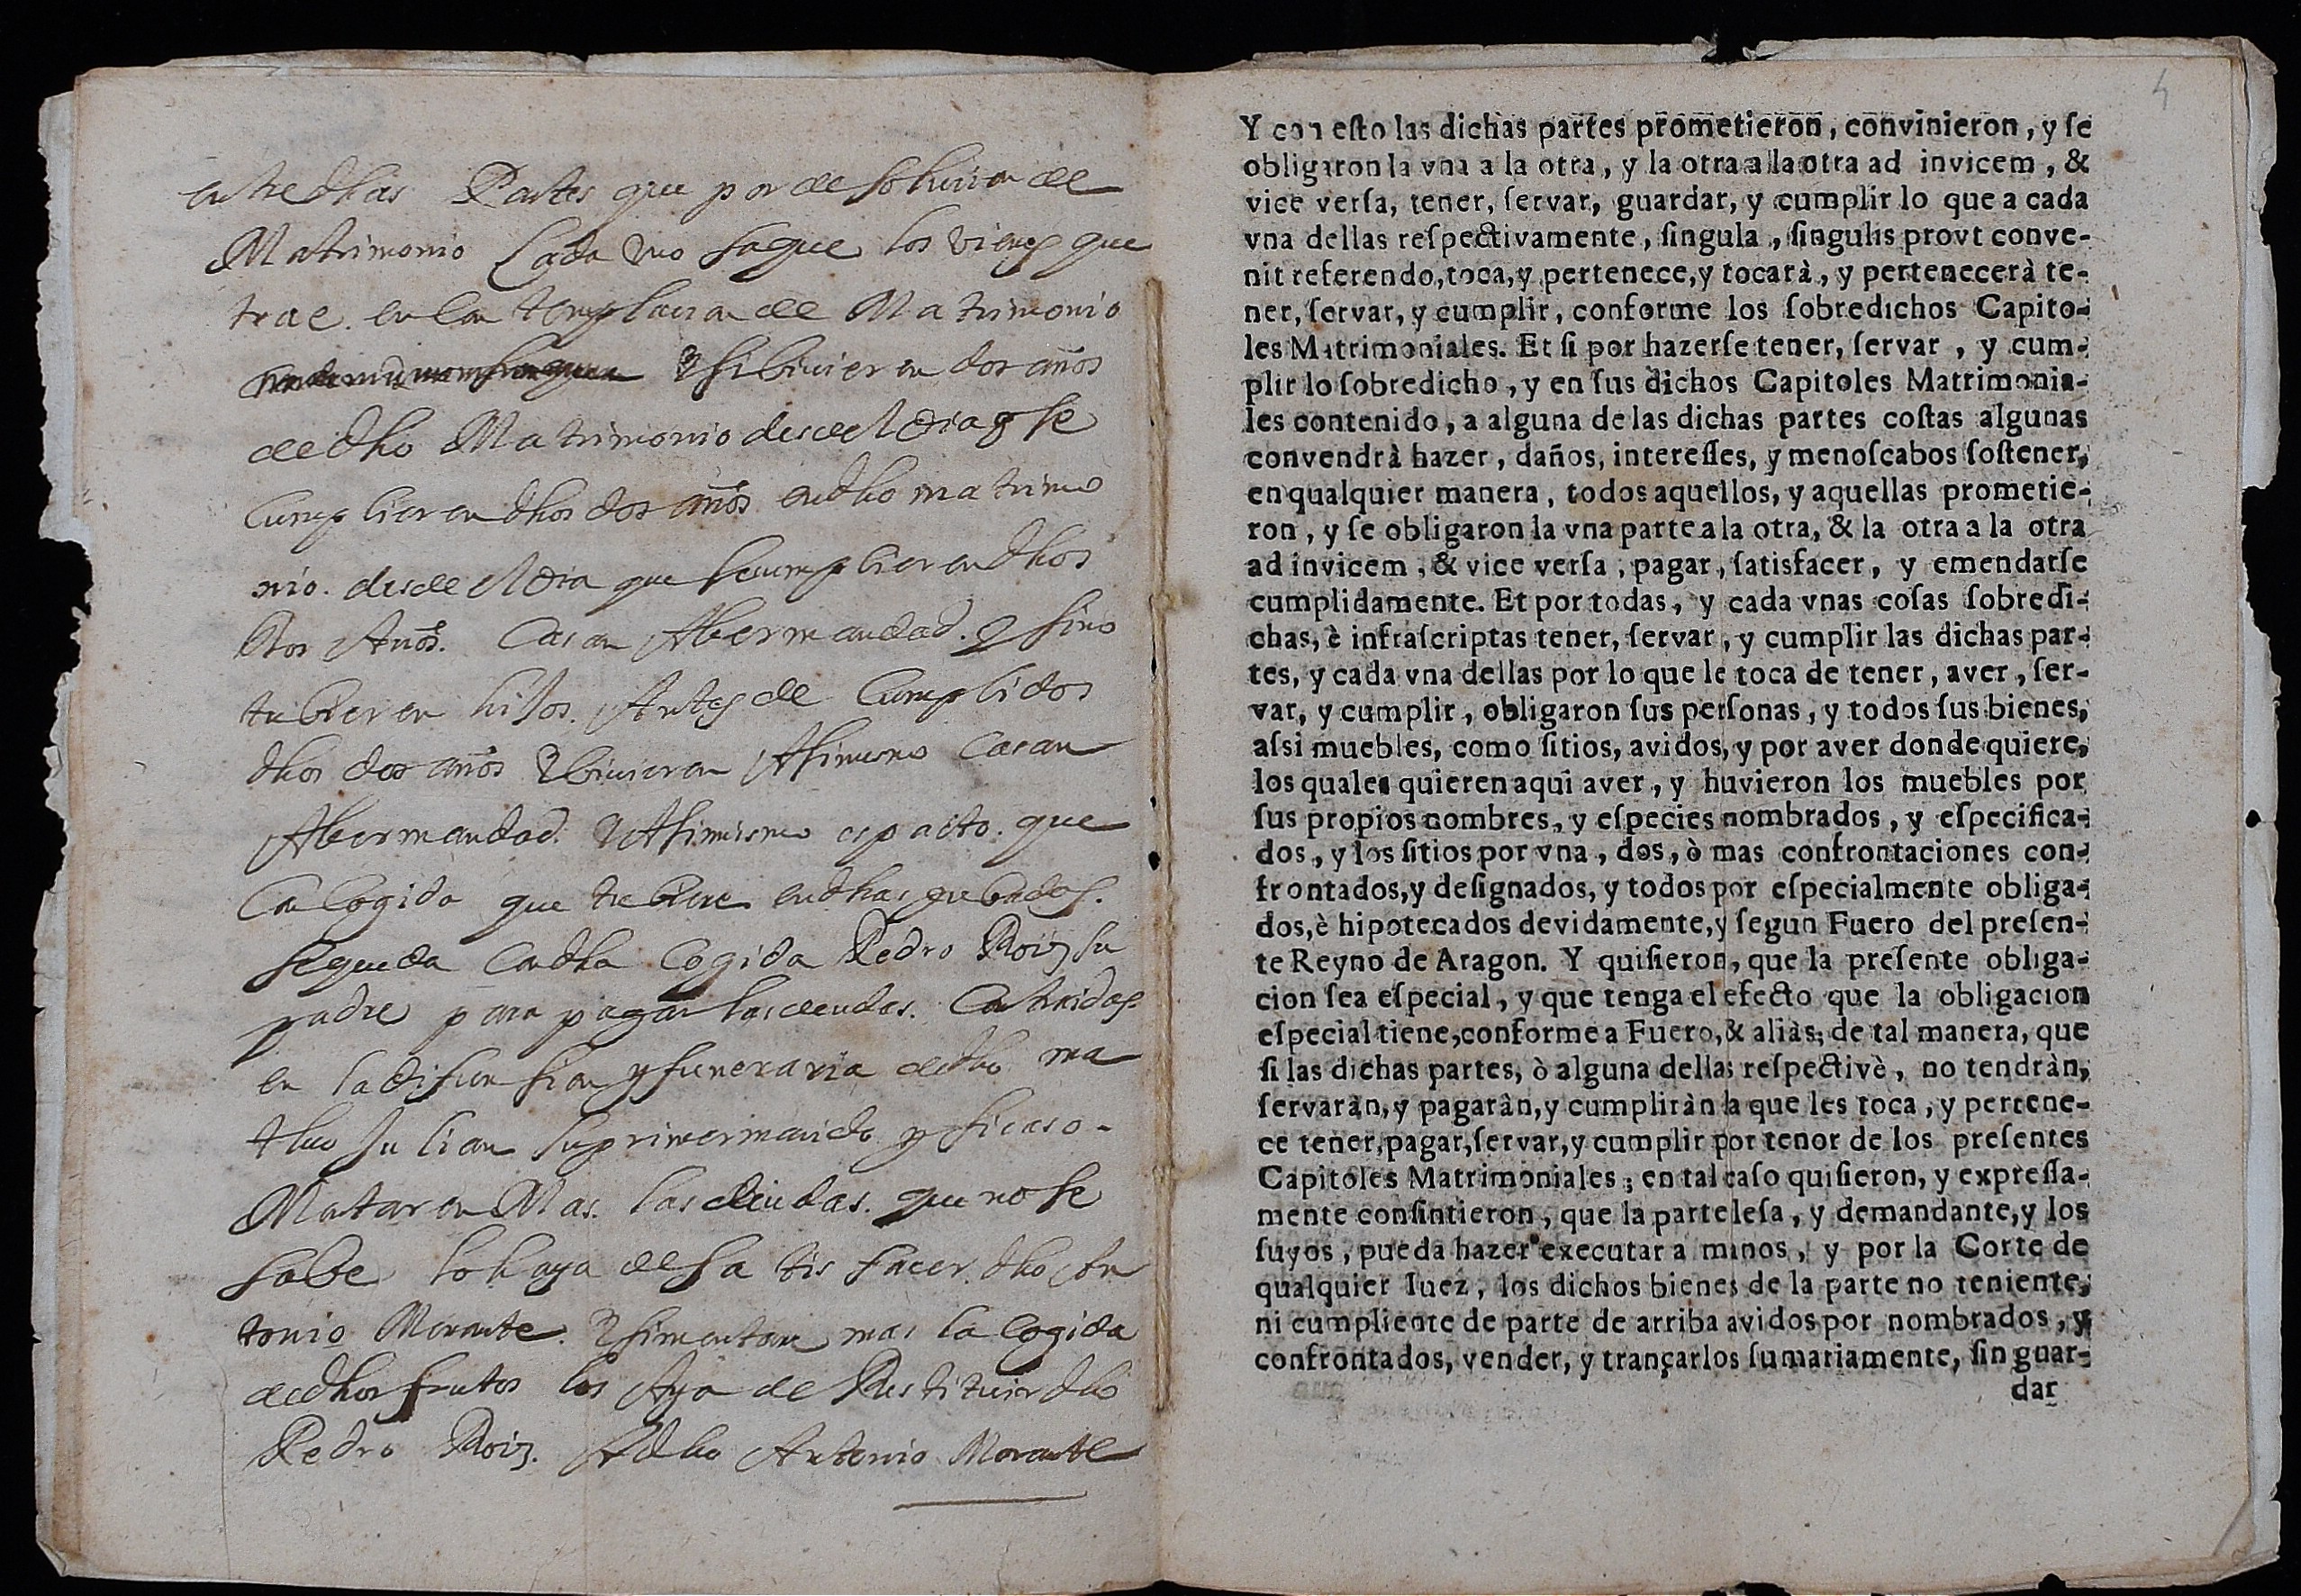 entre dhas Partes que por desolucion de
Matrimonio Cada vno saque los vienes que
trae. en la templacion de Matrimonio
Y si biuieren dos años
de dho Matrimonio desde el dia q se
Cumplieren dhos dos años en dho matrimo
nio. desde el dia que se cumplieren dhos
Dos Años. Casan Aermandad. y sino
tubieren hiJos. Antes de Cumplidos
dhos dos años y biuieren Asimismo Casan
Aermandad. Y Asimismo es pacto. que
La Cogida que tubiere en dhas
se queda Con dha Cogida Pedro Roiz su
padre para pagar las deudas. Contraidas
en la difunsion y funeraria de dho ma
theo Julian su primer marido y si caso.
Montaren Mas. las deudas. que no se
sabe lo haya de satisfacer. dho An
tonio Morante. Y si montare mas la Cogida
de dhos frutos los Aya de Restituir dho
Pedro Roiz. A dho Antonio Morante
4
Y con eſto las dichas partes prometieron, convinieron, y ſe
obligaron la vna a la otra, y la otra a la otra ad invicem, &
vice verſa, tener, ſervar, guardar, y cumplir lo que a cada
vna dellas reſpectivamente, ſingula, ſingulis provt conve-
nit referendo, toca, y pertenece, y tocarà, y pertenecerà te-
ner, ſervar, y cumplir, conforme los ſobredichos Capito-
les Matrimoniales. Et ſi por hazerſe tener, ſervar, y cum-
plir lo ſobredicho, y en ſus dichos Capitoles Matrimonia-
les contenido, a alguna de las dichas partes coſtas algunas
convendrà hazer, daños, intereſſes, y menoſcabos ſoſtener,
en qualquier manera, todos aquellos, y aquellas prometie-
ron, y ſe obligaron la vna parte a la otra, & la otra a la otra
ad invicem, & vice verſa, pagar, ſatisfacer, y emendarſe
cumplidamente. Et por todas, y cada vnas coſas ſobredi-
chas, è infraſcriptas tener, ſervar, y cumplir las dichas par-
tes, y cada vna dellas por lo que le toca de tener, aver, ſer-
var, y cumplir, obligaron ſus perſonas, y todos ſus bienes,
aſsi muebles, como ſitios, avidos, y por aver donde quiere,
los quales quieren aqui aver, y huvieron los muebles por
ſus propios nombres, y eſpecies nombrados, y eſpecifica-
dos, y los ſitios por vna, dos, ò mas confrontaciones con-
frontados, y deſignados, y todos por eſpecialmente obliga-
dos, è hipotecados devidamente, y ſegun Fuero del preſen-
te Reyno de Aragon. Y quiſieron, que la preſente obliga-
cion ſea eſpecial, y que tenga el efecto que la obligacion
eſpecial tiene, conforme a Fuero, & aliàs; de tal manera, que
ſi las dichas partes, ò alguna dellas reſpectivè, no tendràn,
ſervaràn, y pagaràn, y cumpliràn la que les toca, y pertene-
ce tener, pagar, ſervar, y cumplir por tenor de los preſentes
Capitoles Matrimoniales; en tal caſo quiſieron, y expreſſa-
mente conſintieron, que la parte leſa, y demandante, y los
ſuyos, pueda hazer executar a minos, y por la Corte de
qualquier Iuez, los dichos bienes de la parte no teniente,
ni cumpliente de parte de arriba avidos por nombrados, y
confrontados, vender, y trançarlos ſumariamente, ſin guar-
dar